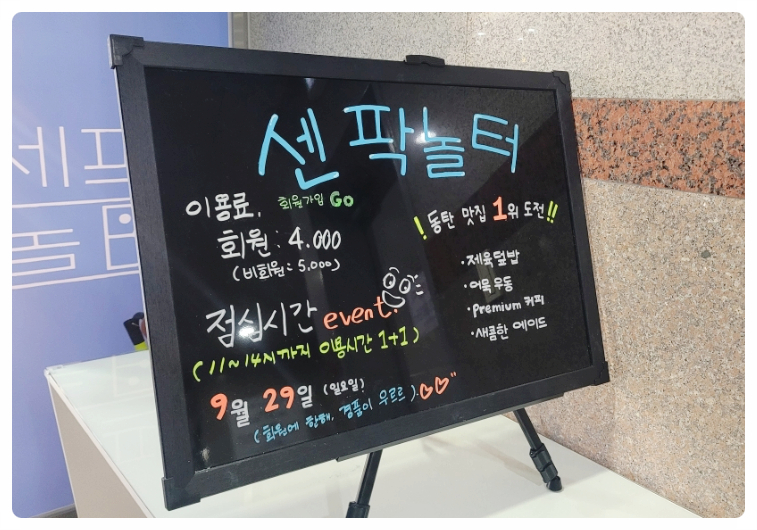 세프
놀터
센팍놀터
이용료, 회원가입 Go
회원 : 4.000
(비회원 : 5.000)
점심시간 event!
(11~14시까지 이용시간 1+1)
9월 29일 (일요일)
(회원에 한해, 경품이 우르르).♡♡"
!동탄 맛집 1위 도전!!
·제육덮밥
·어묵우동
·Premium 커피
·새콤한 에이드